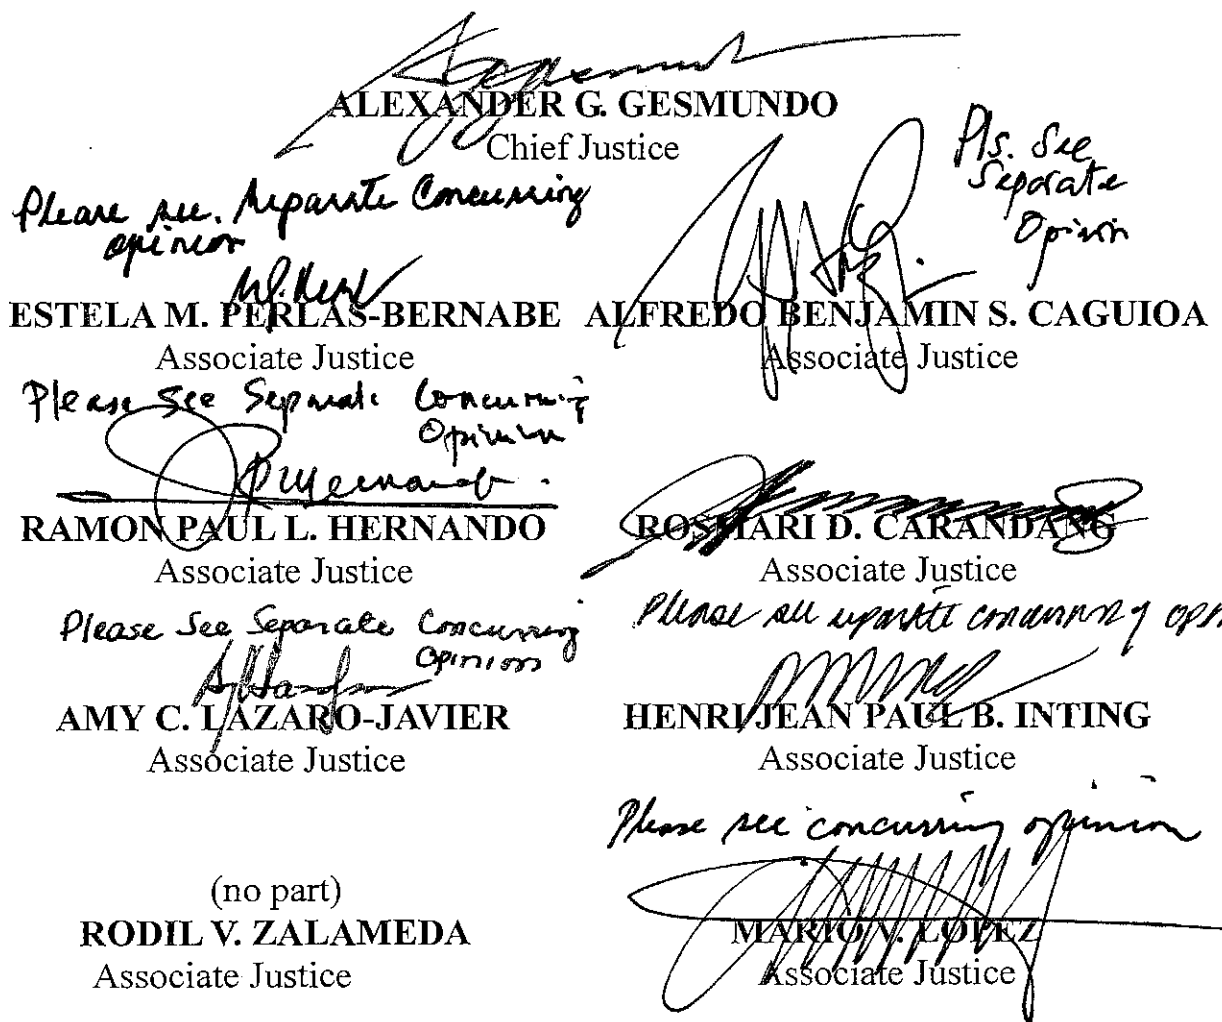 ALEXANDER G. GESMUNDO
Chief Justice
Please see Separate Concurring
opinion
ESTELA M. PERLAS-BERNABE
Associate Justice
Pls. See
Separate
Opinion
ALFREDO BENJAMIN S. CAGUIOA
Associate Justice
Please See Separate Concurring
Opinion
RAMON PAUL L. HERNANDO
Associate Justice
ROSMARI D. CARANDANG
Associate Justice
Please See Separate Concurring
Opinion
AMY C. LAZARO-JAVIER
Associate Justice
Please see separate concurring
HENRI JEAN PAUL B. INTING
Associate Justice
(no part)
RODIL V. ZALAMEDA
Associate Justice
Please see concurring opinion
MARIO V. LOPEZ
Associate Justice